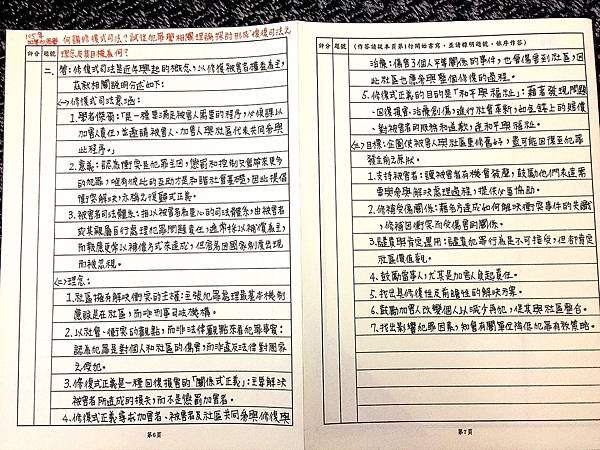 105年
何謂修復式司法?試從犯罪學相關理論探討形成修復司法之
評分 題號 理念及其目標為何?
二、答:修復式司法是近年興起的概念,以修復被害者權益為主,
茲就相關說明分述如下:
(一)修復式司法意涵:
1.學者傑葡:「是一種為滿足被害人需要的程序,必須課以
加害人責任,並邀請被害人、加害人與社區代表共同參與
此程序。」
2.意義:認為衝突是犯罪主因,懲罰和控制只會帶來更多
的犯罪,唯有彼此的互助才是和諧社會基礎,因此提倡
衝突解決,亦稱之復歸式正義。
3.被害者司法體系:指以被害者為重心的司法體系,由被害者
或其親屬自行處理犯罪問題責任,通常採以補償為主,
而報應更常以補償方式來達成,但常易因國家制度出現
而被忽視。
(二)理念:
1.社區擁有解決衝突的主權:主張犯罪處理最基本機制
應該是在社區,而非刑事司法機構。
2.以社會、衝突的觀點,而非法律觀點來看犯罪事實:
認為犯罪是對個人和社區的傷害,而非違反法律對國家
之侵犯。
3.修復式正義是一種回復損害的「關係式正義」:主要解決
被害者所造成的損失,而不是懲罰加害者。
4.修復式正義尋求加害者、被害者及社區共同參與修復與
第6頁
評分 題號 (作答請從本頁第1行開始書寫,並請標明題號,依序作答)
治療:傷害了個人平等關係的事件,也會傷害到社區,因
此社區也應參與整個修復的過程。
5.修復式正義的目的是「和平與福祉」:藉著發現問題
、回復損害、治療創傷,進行社會革新,如金錢上的賠償
、對被害者的服務和道歉,達和平與福祉。
(三)目標:企圖使被害人與社區重修舊好,盡可能回復至犯罪
發生前之原狀。
1.支持被害者:讓被害者有機會發聲,鼓勵他們表達需
要與參與解決處理過程,提供必要協助。
2.修補受傷關係:藉各方達成如何解決衝突事件的共識
,修補因衝突而受傷害的關係。
3.譴責與肯定運用:譴責犯罪行為是不可接受,但卻肯定
社區價值觀。
4.鼓勵當事人,尤其是加害人負起責任。
5.找出具修復性及前瞻性的解決方案。
6.鼓勵加害人改變個人以減少再犯,促其與社區整合。
7.找出影響犯罪因素,知會有關單位降低犯罪有效策略。
第7頁